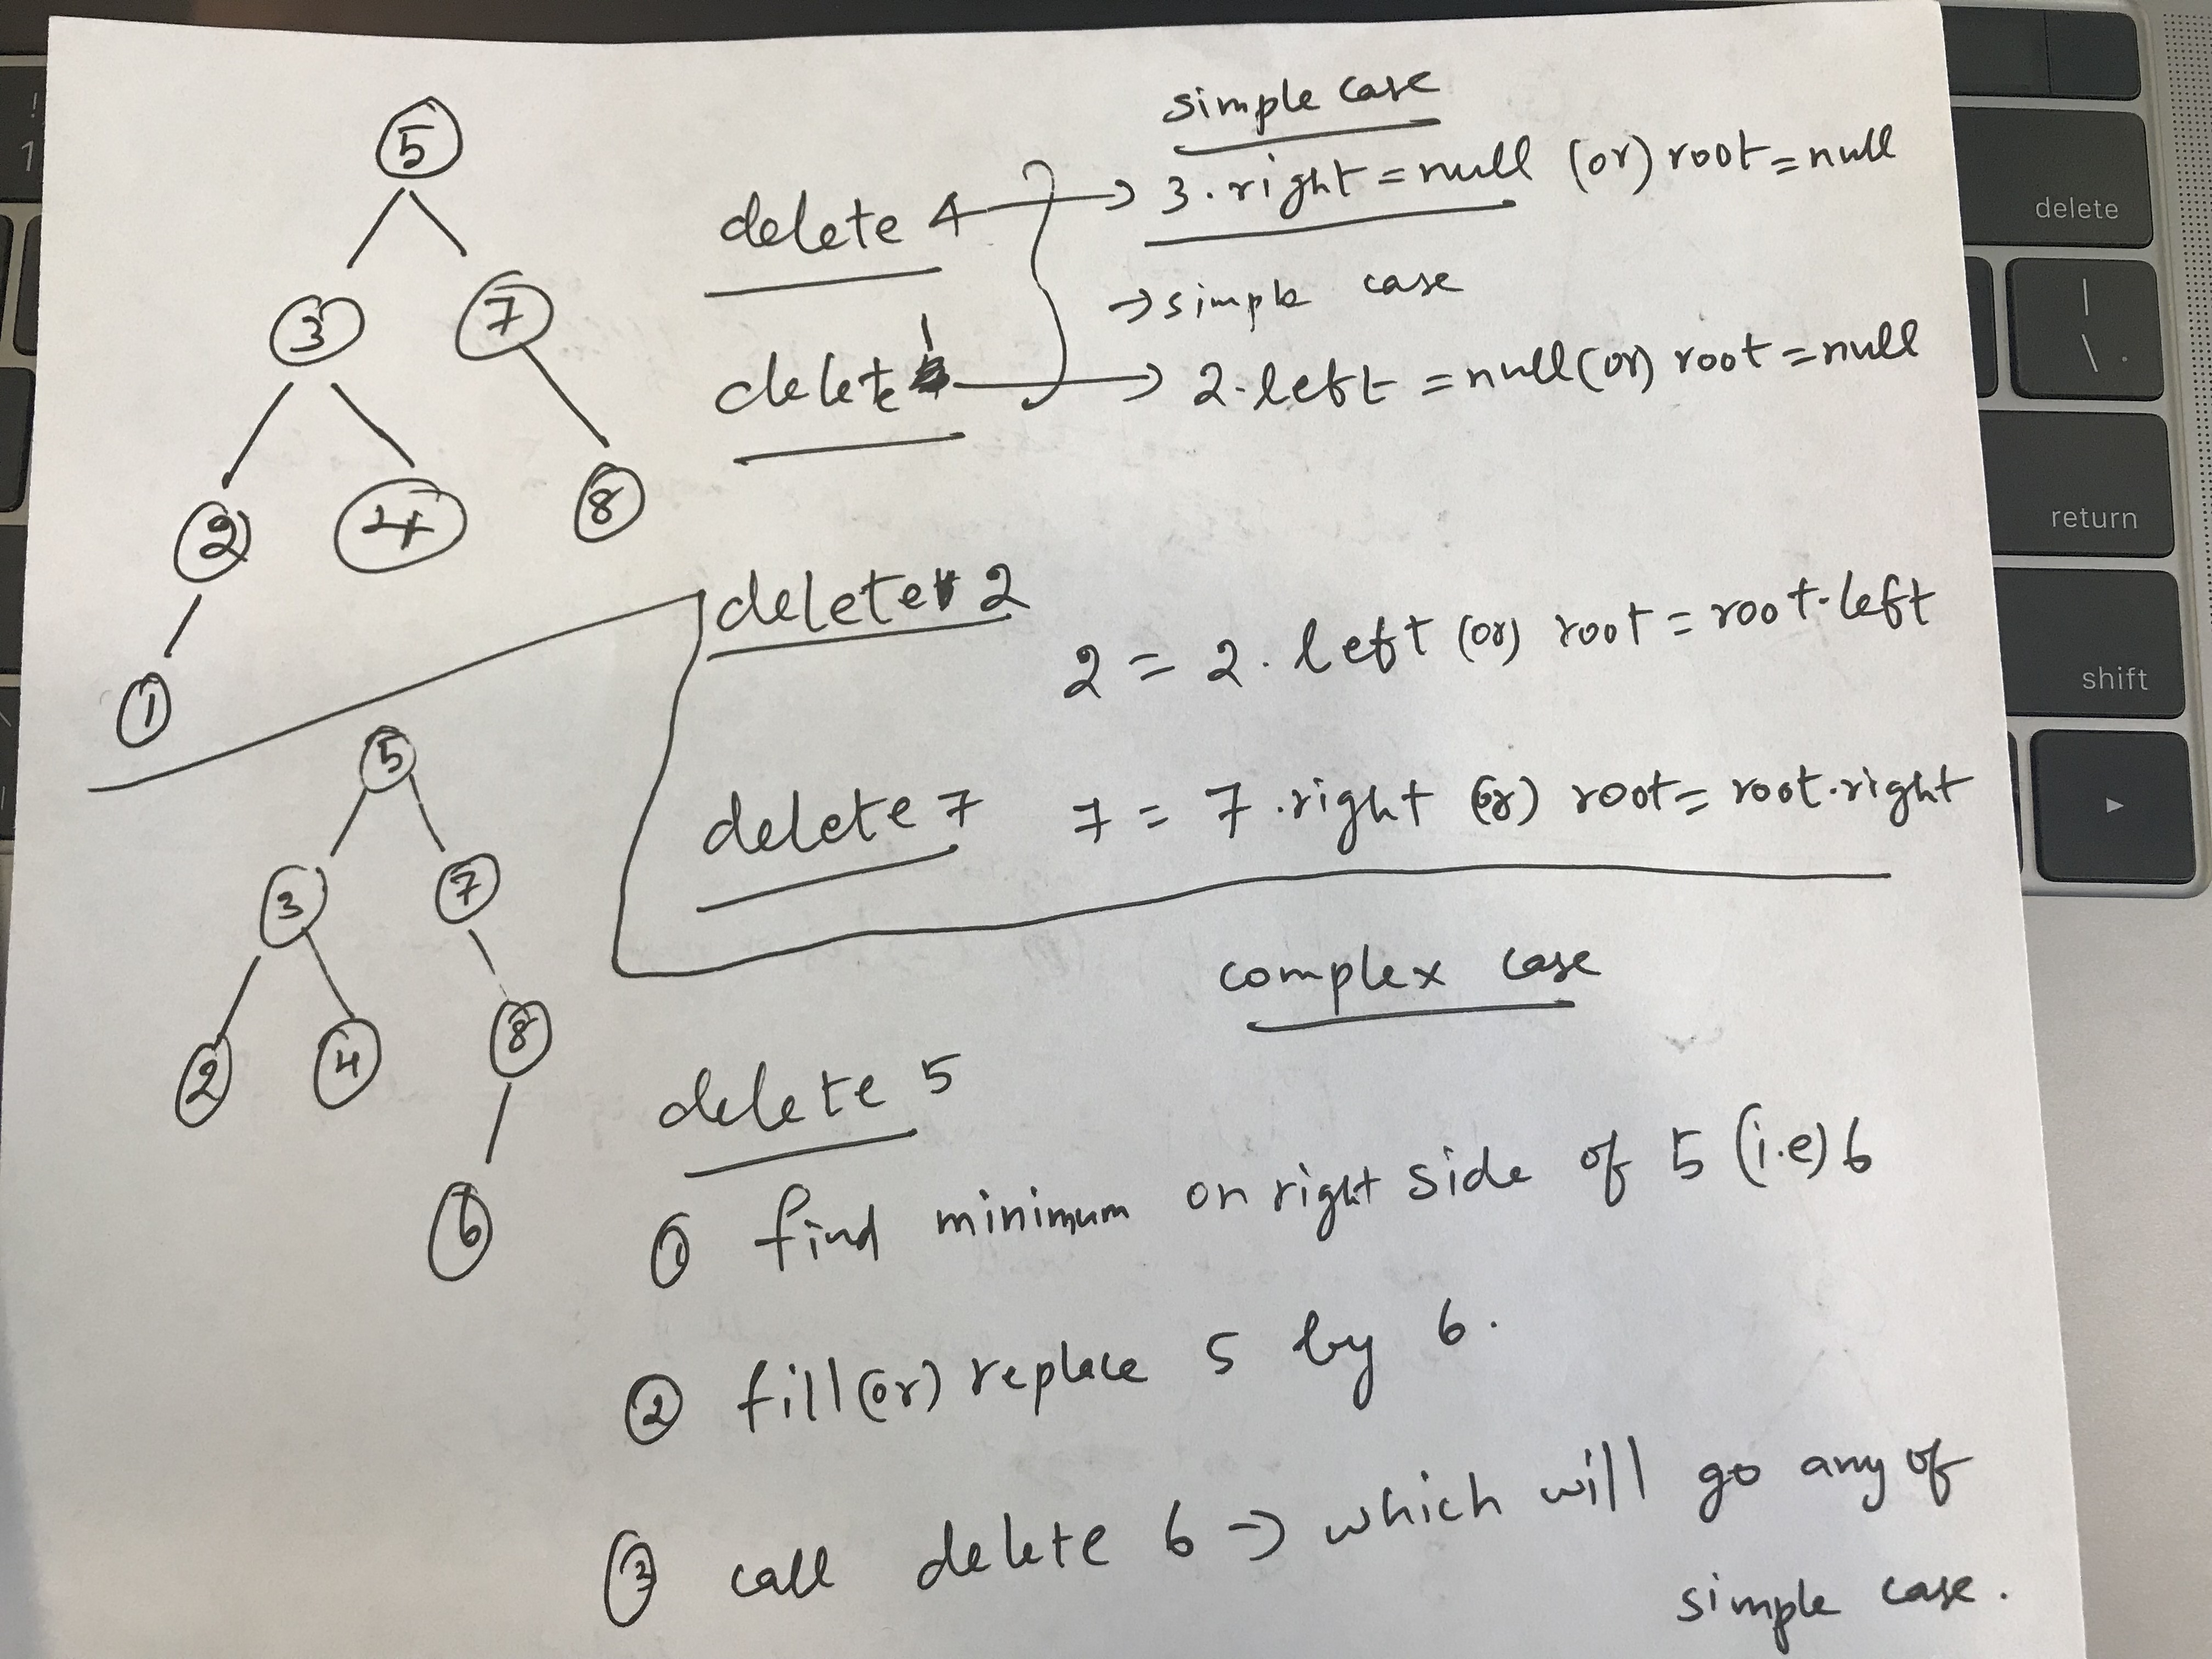 simple case
delete 4 → 3.right = null (or) root = null
→ simple case
delete 1 → 2.left = null (or) root = null
5
3 7
2 4 8
1
delete 2
2 = 2.left (or) root = root.left
delete 7 7 = 7.right (or) root = root.right
complex case
5
3 7
2 4 8
6
delete 5
① find minimum on right side of 5 (i.e) 6
② fill (or) replace 5 by 6.
③ call delete 6 → which will go any of
simple case.
!
1
delete
|
\
return
shift